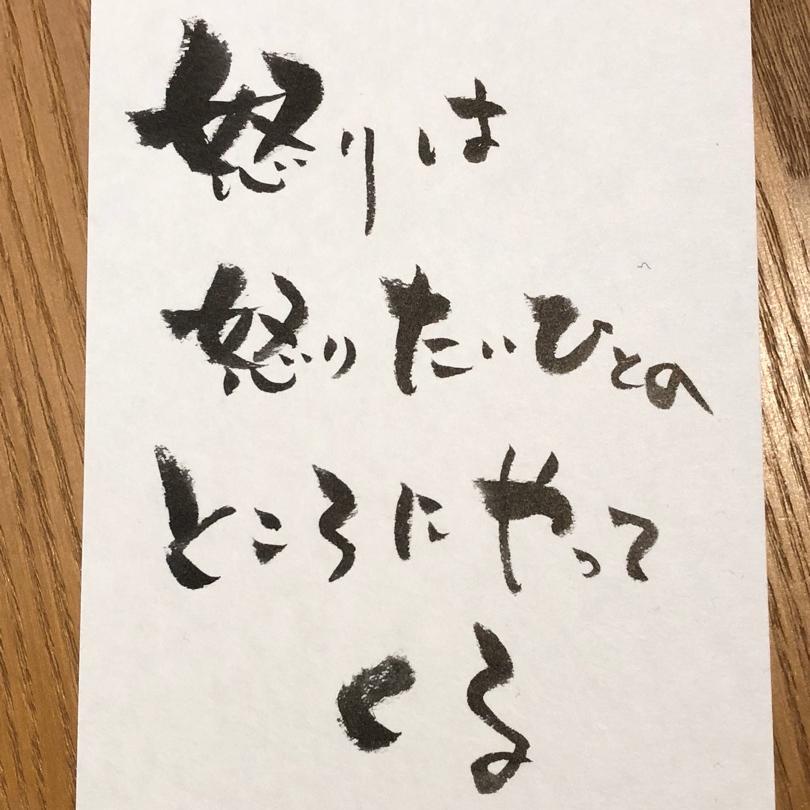 怒りは
怒りたいひとの
ところにやって
くる